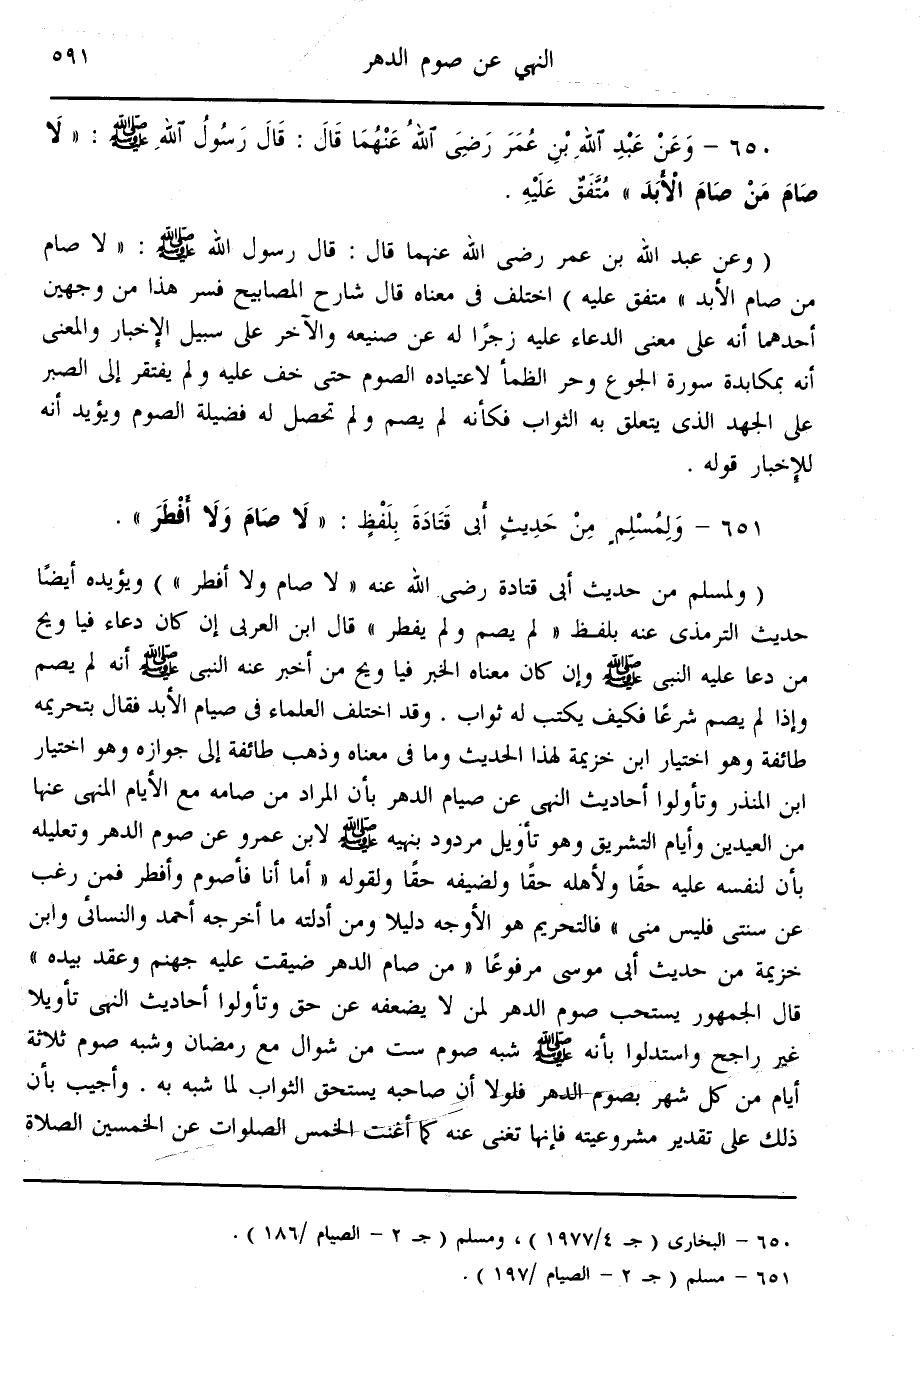 النهي عن صوم الدهر
٥٩١
٦٥٠ – وَعَنْ عَبْدِ ٱللهِ بْنِ عُمَرَ رَضِىَ ٱللهُ عَنْهُمَا قَالَ : قَالَ رَسُولُ ٱللهِ ﷺ : « لَا
صَامَ مَنْ صَامَ الْأَبَدَ » مُتَّفَقٌ عَلَيْهِ .
( وعن عبد الله بن عمر رضى الله عنهما قال : قال رسول الله ﷺ : « لا صام
من صام الأبد » متفق عليه ) اختلف فى معناه قال شارح المصابيح فسر هذا من وجهين
أحدهما أنه على معنى الدعاء عليه زجرًا له عن صنيعه والآخر على سبيل الإخبار والمعنى
أنه بمكابدة سورة الجوع وحر الظمأ لاعتياده الصوم حتى خف عليه ولم يفتقر إلى الصبر
على الجهد الذى يتعلق به الثواب فكأنه لم يصم ولم تحصل له فضيلة الصوم ويؤيد أنه
للإخبار قوله .
٦٥١ – وَلِمُسْلِمٍ مِنْ حَدِيثِ أَبى قَتَادَةَ بِلَفْظٍ : « لَا صَامَ وَلَا أَفْطَرَ » .
( ولمسلم من حديث أبى قتادة رضى الله عنه « لا صام ولا أفطر » ) ويؤيده أيضًا
حديث الترمذى عنه بلفظ « لم يصم ولم يفطر » قال ابن العربى إن كان دعاء فيا ويح
من دعا عليه النبى ﷺ وإن كان معناه الخبر فيا ويح من أخبر عنه النبى ﷺ أنه لم يصم
وإذا لم يصم شرعًا فكيف يكتب له ثواب . وقد اختلف العلماء فى صيام الأبد فقال بتحريمه
طائفة وهو اختيار ابن خزيمة لهذا الحديث وما فى معناه وذهب طائفة إلى جوازه وهو اختيار
ابن المنذر وتأولوا أحاديث النهى عن صيام الدهر بأن المراد من صامه مع الأيام المنهى عنها
من العيدين وأيام التشريق وهو تأويل مردود بنهيه ﷺ لابن عمرو عن صوم الدهر وتعليله
بأن لنفسه عليه حقًا ولأهله حقًا ولضيفه حقًا ولقوله « أما أنا فأصوم وأفطر فمن رغب
عن سنتى فليس منى » فالتحريم هو الأوجه دليلا ومن أدلته ما أخرجه أحمد والنسائى وابن
خزيمة من حديث أبى موسى مرفوعًا « من صام الدهر ضيقت عليه جهنم وعقد بيده »
قال الجمهور يستحب صوم الدهر لمن لا يضعفه عن حق وتأولوا أحاديث النهى تأويلا
غير راجح واستدلوا بأنه ﷺ شبه صوم ست من شوال مع رمضان وشبه صوم ثلاثة
أيام من كل شهر بصوم الدهر فلولا أن صاحبه يستحق الثواب لما شبه به . وأجيب بأن
ذلك على تقدير مشروعيته فإنها تغنى عنه كما أغنت الخمس الصلوات عن الخمسين الصلاة
٦٥٠ – البخارى ( جـ ١٩٧٧/٤ ) ، ومسلم ( جـ ٢ – الصيام /١٨٦ ) .
٦٥١ – مسلم ( جـ ٢ – الصيام /١٩٧ ) .